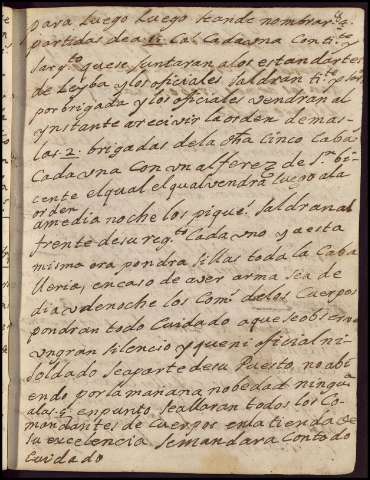 para luego luego se ande nombrar 4
partidas de a 11 Caˢ Cada una Con ti.te y
sarg.to que se juntaran a los estandartes
de Leyba y los oficiales saldran ti.te y
por brigada y los oficiales vendran al
ynstante a recivir la orden demas
las 2. brigadas de la otra Cinco Cabaˢ
Cada una Con un alferez de S.n bi
cente el qual el qual vendra luego ala
orden
a media noche los piqueˢ saldran al
frente de su reg.to Cada uno y a esta
misma ora pondra sillas toda la Caba
lleria, en caso de aver arma sea de
dia u de noche los Com.s de los Cuerpos
pondran todo Cuidado a que se observe
un gran silencio y que ni oficial ni
soldado se aparte de su Puesto, no abi
endo por la mañana nobedad ningu.a
alas 5 en punto se allaran todos los Co
mandantes de Cuerpos en la tienda de
su excelencia se mandara Con todo
Cuidado